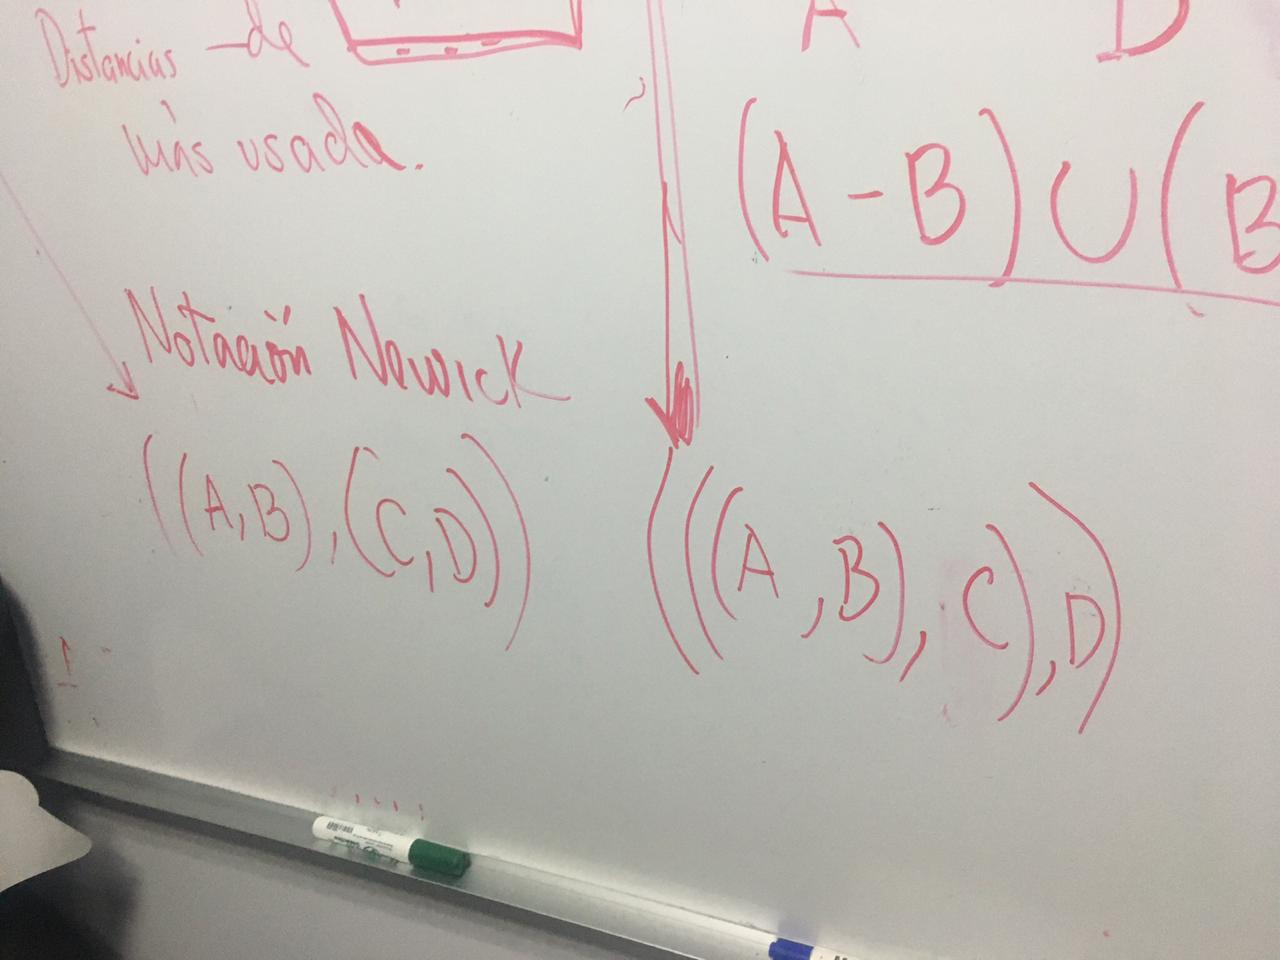 Distancias de
más usada.
A D
(A - B) ∪ (B
Notación Newick
((A,B),(C,D))
(((A,B),C),D)